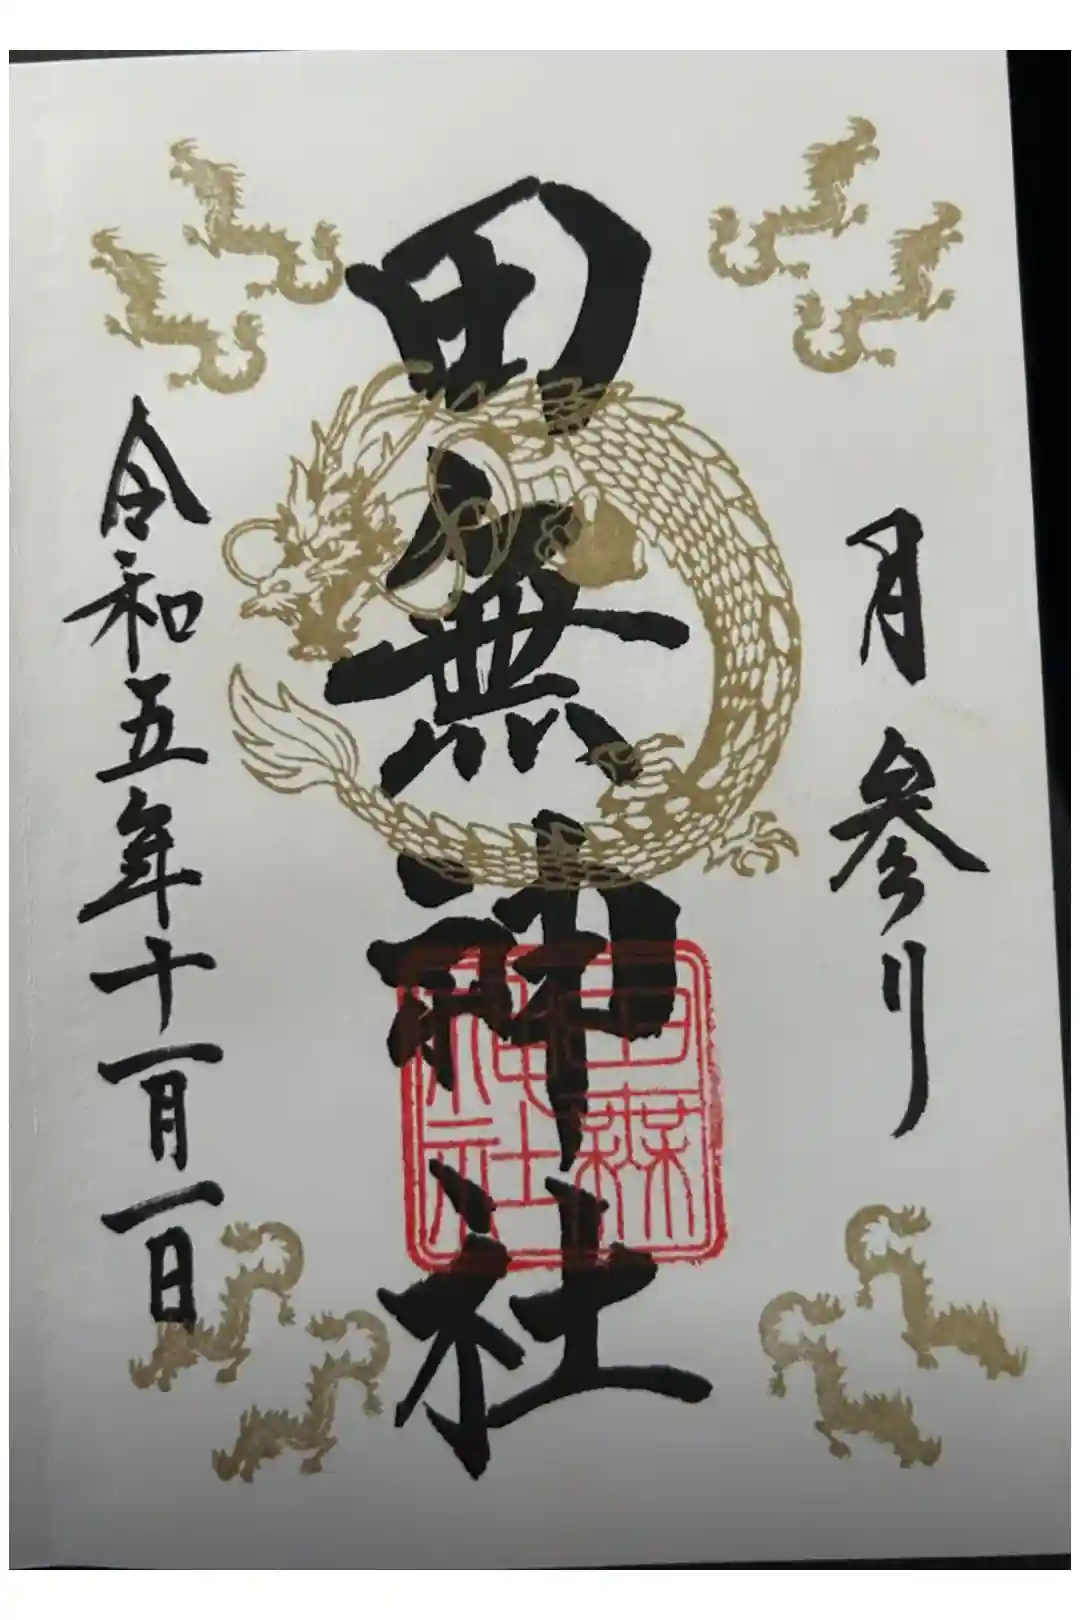 月参り
田無神社
令和五年十一月一日
田無神社